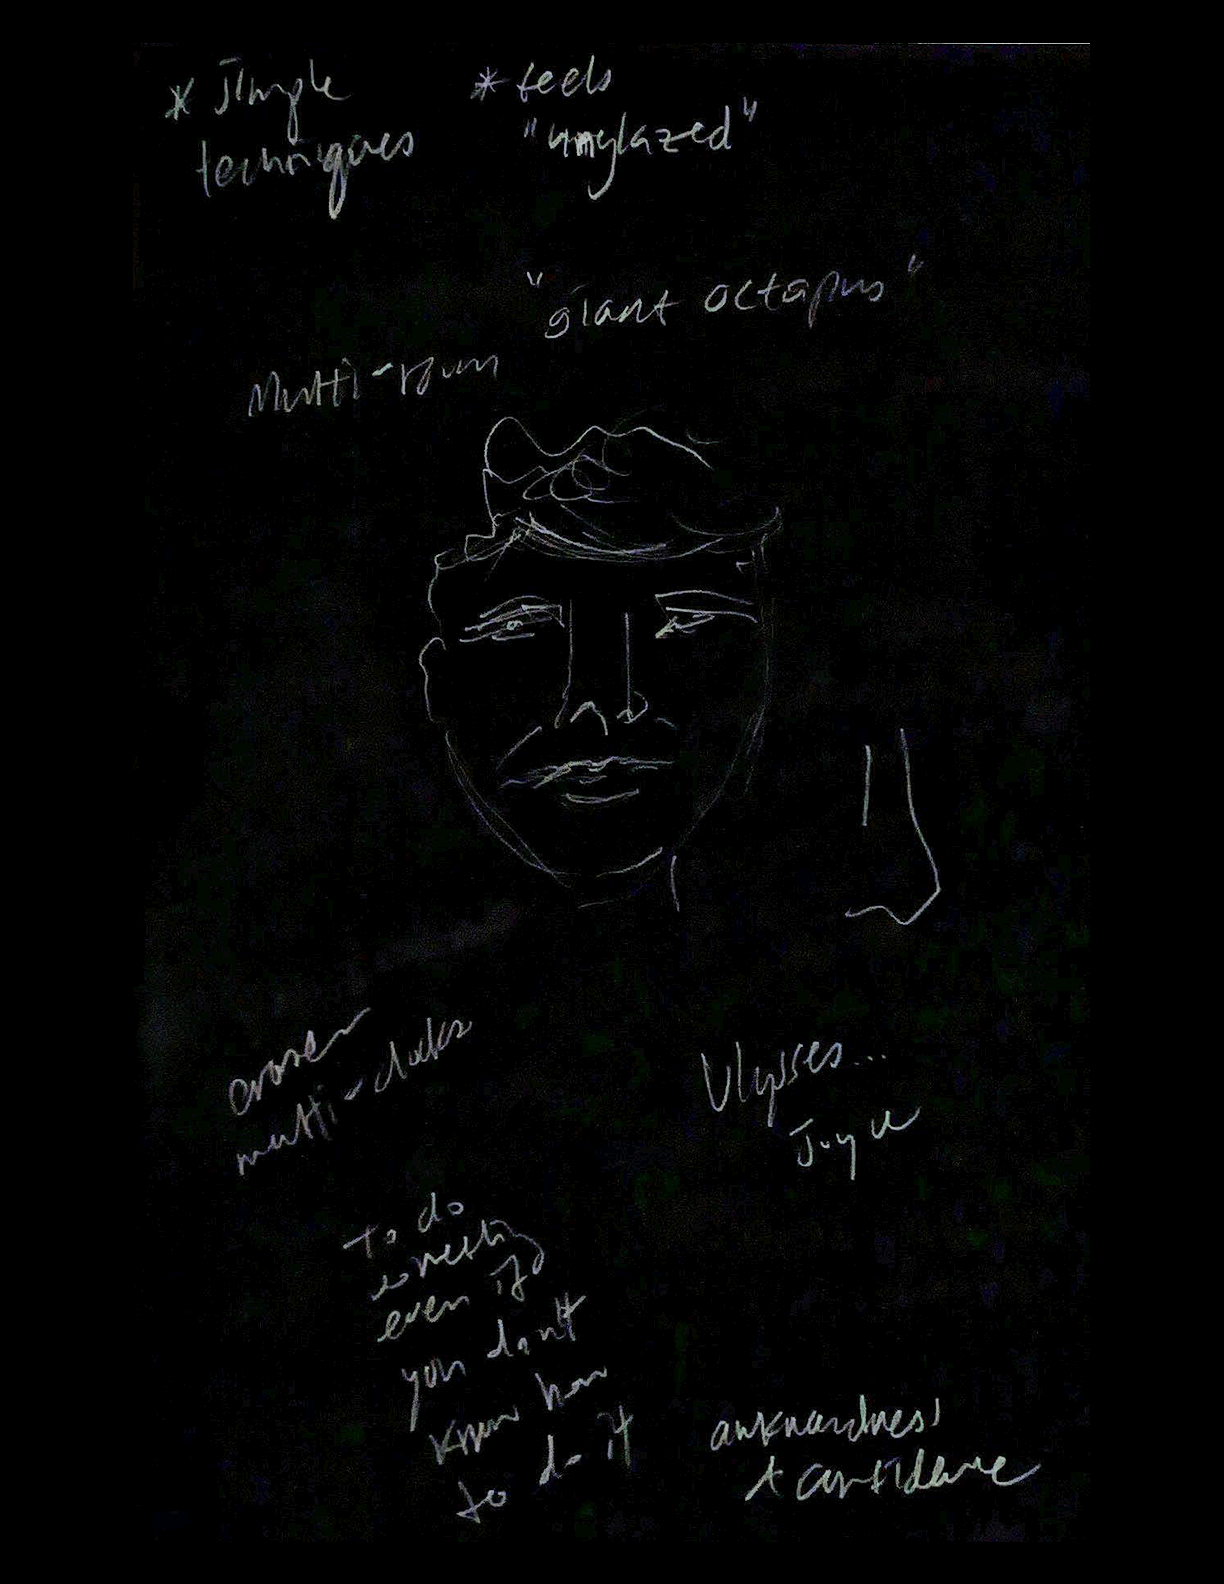 * simple
techniques
* feels
"unglazed"
"giant octopus"
multi-
multi-
Ulysses...
Joyce
to do
something
even if
you don't
know how
to do it
awkwardness
+ confidence